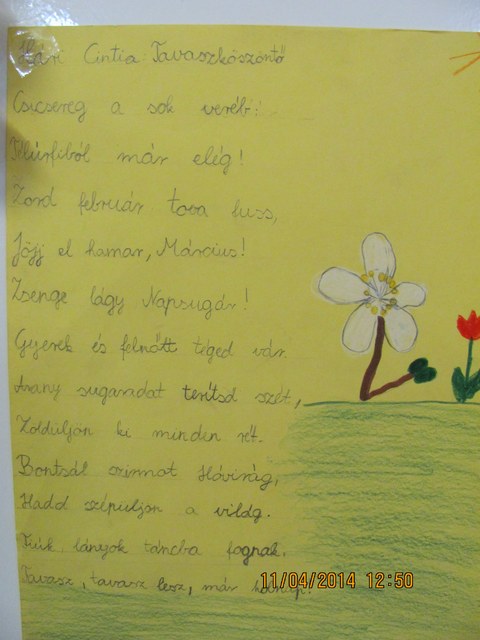 Hári Cintia: Tavaszköszöntő
Csicsereg a sok veréb:
Télűrfiból már elég!
Zord február tova fuss,
Jöjj el hamar, Március!
Zsenge lágy Napsugár!
Gyerek és felnőtt tiged vár.
Arany sugaradat terítsd szét,
Zölduljön ki minden rét.
Bontsál szirmot Hóvirág,
Hadd szépuljön a világ.
Fiúk lányok táncba fognak.
Tavasz, tavasz lesz, már holnap!
11/04/2014 12:50